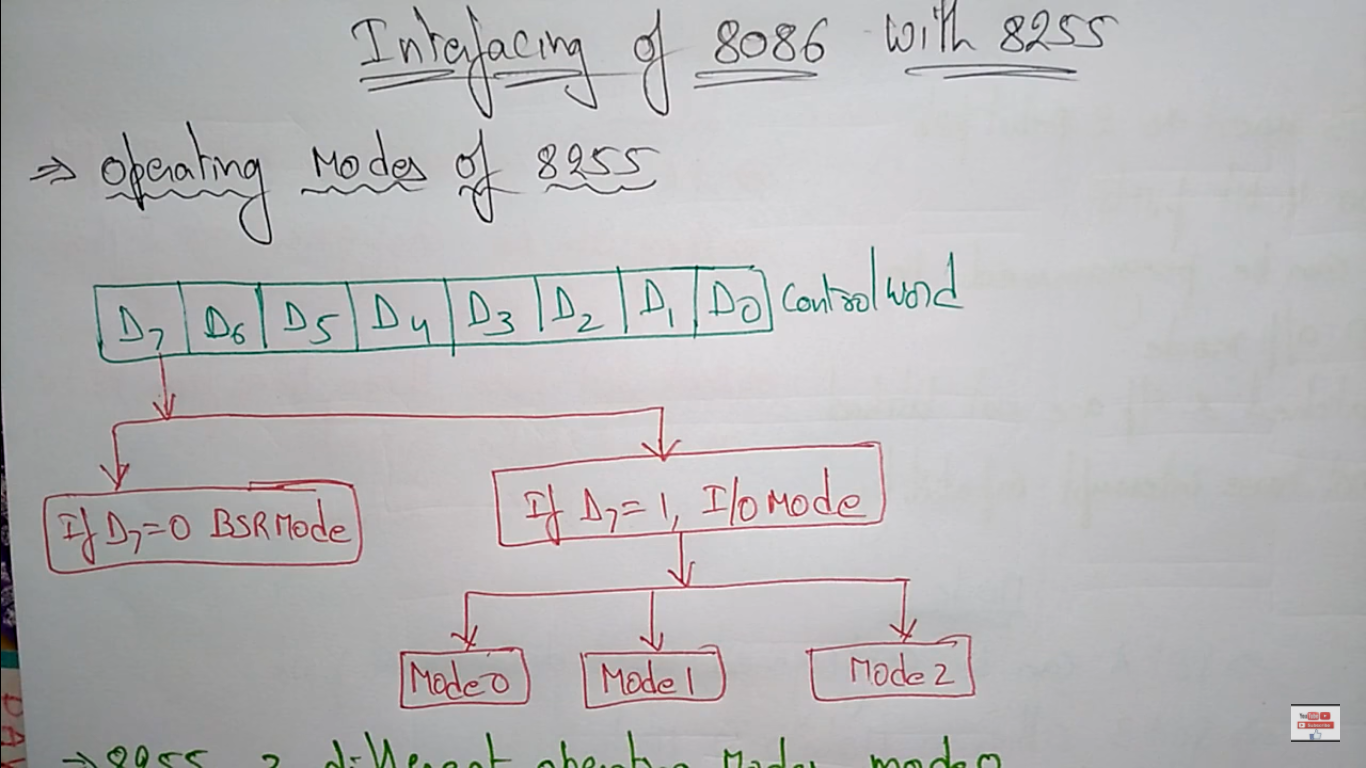 Interfacing of 8086 with 8255
⇒ Operating Modes of 8255
D7 D6 D5 D4 D3 D2 D1 D0 Control Word
If D7=0 BSR Mode
If D7=1, I/O Mode
Mode 0 Mode 1 Mode 2
→ 8255 different operating Modes mode0